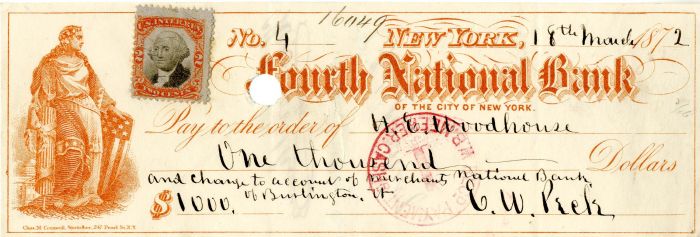 16049
No. 4 New York, 18th March 1872
U.S. INTER. REV.
TWO CENTS
Fourth National Bank
OF THE CITY OF NEW YORK.
Pay to the order of W. E. Woodhouse
One thousand Dollars
and charge to account of Merchants National Bank
of Burlington, Vt
$1000. E. W. Peck
Chas. M. Cornwell, Stationer, 247 Pearl St. N.Y.